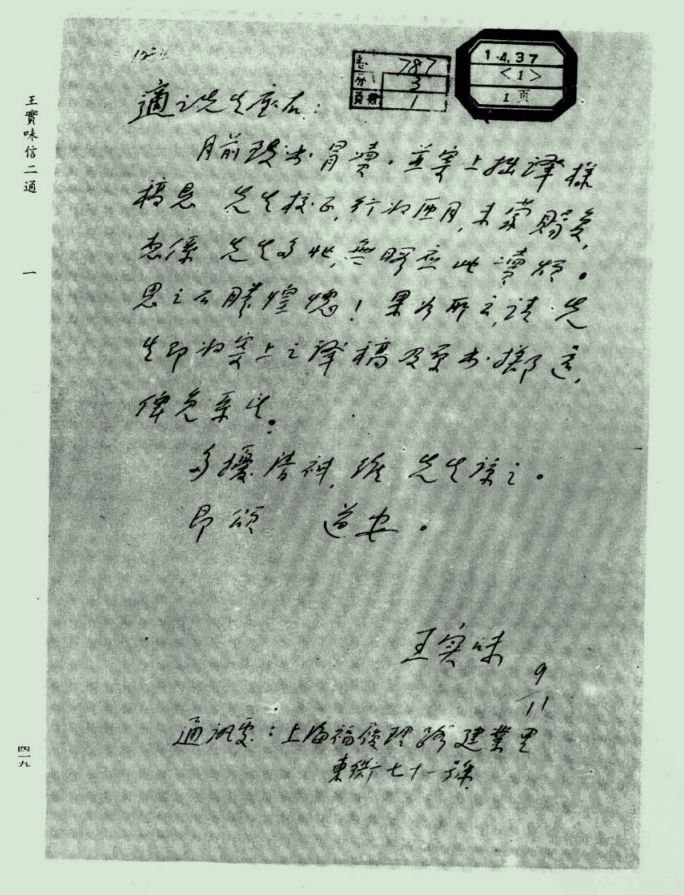 王實味信二通
一
四一九
卷 787
分 3
頁數 1
1.4.37
<1>
1頁
適之先生座右：
月前致書冒瀆，並寄上拙譯樣
稿懇 先生校正，行将匝月，未蒙賜復，
想係 先生多忙，無暇应此瀆煩。
思之不勝惶愧！果如所言，請 先
生即将寄上之譯稿及原書擲還，
俾免系念。
多擾清神，惟 先生諒之。
即頌 道安。
王实味 9/11
通訊處：上海福履理路建業里
東衖七十一號